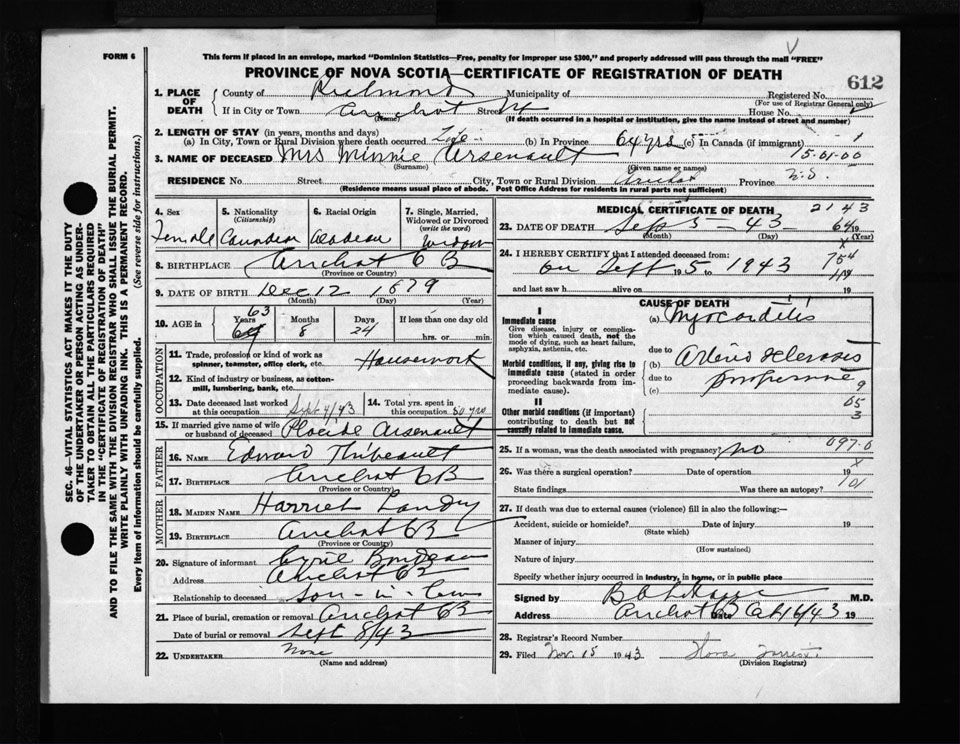 FORM 6
This form if placed in an envelope, marked "Dominion Statistics—Free, penalty for improper use $300," and properly addressed will pass through the mail "FREE"
PROVINCE OF NOVA SCOTIA—CERTIFICATE OF REGISTRATION OF DEATH
612
1. PLACE OF DEATH
County of Richmond Municipality of Registered No.
(For use of Registrar General only)
If in City or Town Arichat Street House No.
(Name) (If death occurred in a hospital or institution, give the name instead of street and number)
2. LENGTH OF STAY (in years, months and days)
(a) In City, Town or Rural Division where death occurred Life (b) In Province 64 yrs (c) In Canada (if immigrant)
15-01-00
3. NAME OF DECEASED Mrs Minnie Arsenault
(Surname) (Given name or names)
RESIDENCE No Street City, Town or Rural Division Arichat Province N.S.
(Residence means usual place of abode. Post Office Address for residents in rural parts not sufficient)
SEC. 46—VITAL STATISTICS ACT MAKES IT THE DUTY
OF THE UNDERTAKER OR PERSON ACTING AS UNDER-
TAKER TO OBTAIN ALL THE PARTICULARS REQUIRED
IN THE "CERTIFICATE OF REGISTRATION OF DEATH"
AND TO FILE THE SAME WITH THE DIVISION REGISTRAR WHO SHALL ISSUE THE BURIAL PERMIT.
WRITE PLAINLY WITH UNFADING INK. THIS IS A PERMANENT RECORD.
Every item of information should be carefully supplied. (See reverse side for instructions.)
4. Sex
Female
5. Nationality
(Citizenship)
Canadian
6. Racial Origin
Acadian
7. Single, Married,
Widowed or Divorced
(write the word)
Widow
8. BIRTHPLACE Arichat C B
(Province or Country)
9. DATE OF BIRTH Dec 12 1879
(Month) (Day) (Year)
10. AGE in
Years
63
64
Months
8
Days
24
If less than one day old
hrs. or min.
OCCUPATION
11. Trade, profession or kind of work as
spinner, teamster, office clerk, etc. Housework
12. Kind of industry or business, as cotton-
mill, lumbering, bank, etc.
13. Date deceased last worked
at this occupation Sept 4/43
14. Total yrs. spent in
this occupation 50 yrs
15. If married give name of wife
or husband of deceased Placide Arsenault
FATHER
16. NAME Edward Thibeault
17. BIRTHPLACE Arichat CB
(Province or Country)
MOTHER
18. MAIDEN NAME Harriet Landry
19. BIRTHPLACE Arichat CB
(Province or Country)
20. Signature of informant Cyril Boudreau
Address Arichat CB
Relationship to deceased Son-in-law
21. Place of burial, cremation or removal Arichat CB
Date of burial or removal Sept 8/43
22. UNDERTAKER None
(Name and address)
MEDICAL CERTIFICATE OF DEATH
2143
23. DATE OF DEATH Sept 5 - 43 - 19
(Month) (Day) (Year)
64
24. I HEREBY CERTIFY that I attended deceased from:
on Sept 5 1943
and last saw h alive on 19
CAUSE OF DEATH
I
Immediate cause
Give disease, injury or complica-
tion which caused death, not the
mode of dying, such as heart failure,
asphyxia, asthenia, etc.
(a) Myocarditis
due to
Morbid conditions, if any, giving rise to
immediate cause (stated in order
proceeding backwards from im-
mediate cause).
(b) Arterio sclerosis
due to
(c)
II
Other morbid conditions (if important)
contributing to death but not
causally related to immediate cause.
25. If a woman, was the death associated with pregnancy? No
097-0
26. Was there a surgical operation? Date of operation 19
State findings Was there an autopsy?
101
27. If death was due to external causes (violence) fill in also the following:—
Accident, suicide or homicide? Date of injury 19
(State which)
Manner of injury
(How sustained)
Nature of injury
Specify whether injury occurred in industry, in home, or in public place
Signed by M.D.
Address Arichat CB Date Oct 16/43 19
28. Registrar's Record Number
29. Filed Nov. 15 1943 Flora
(Division Registrar)